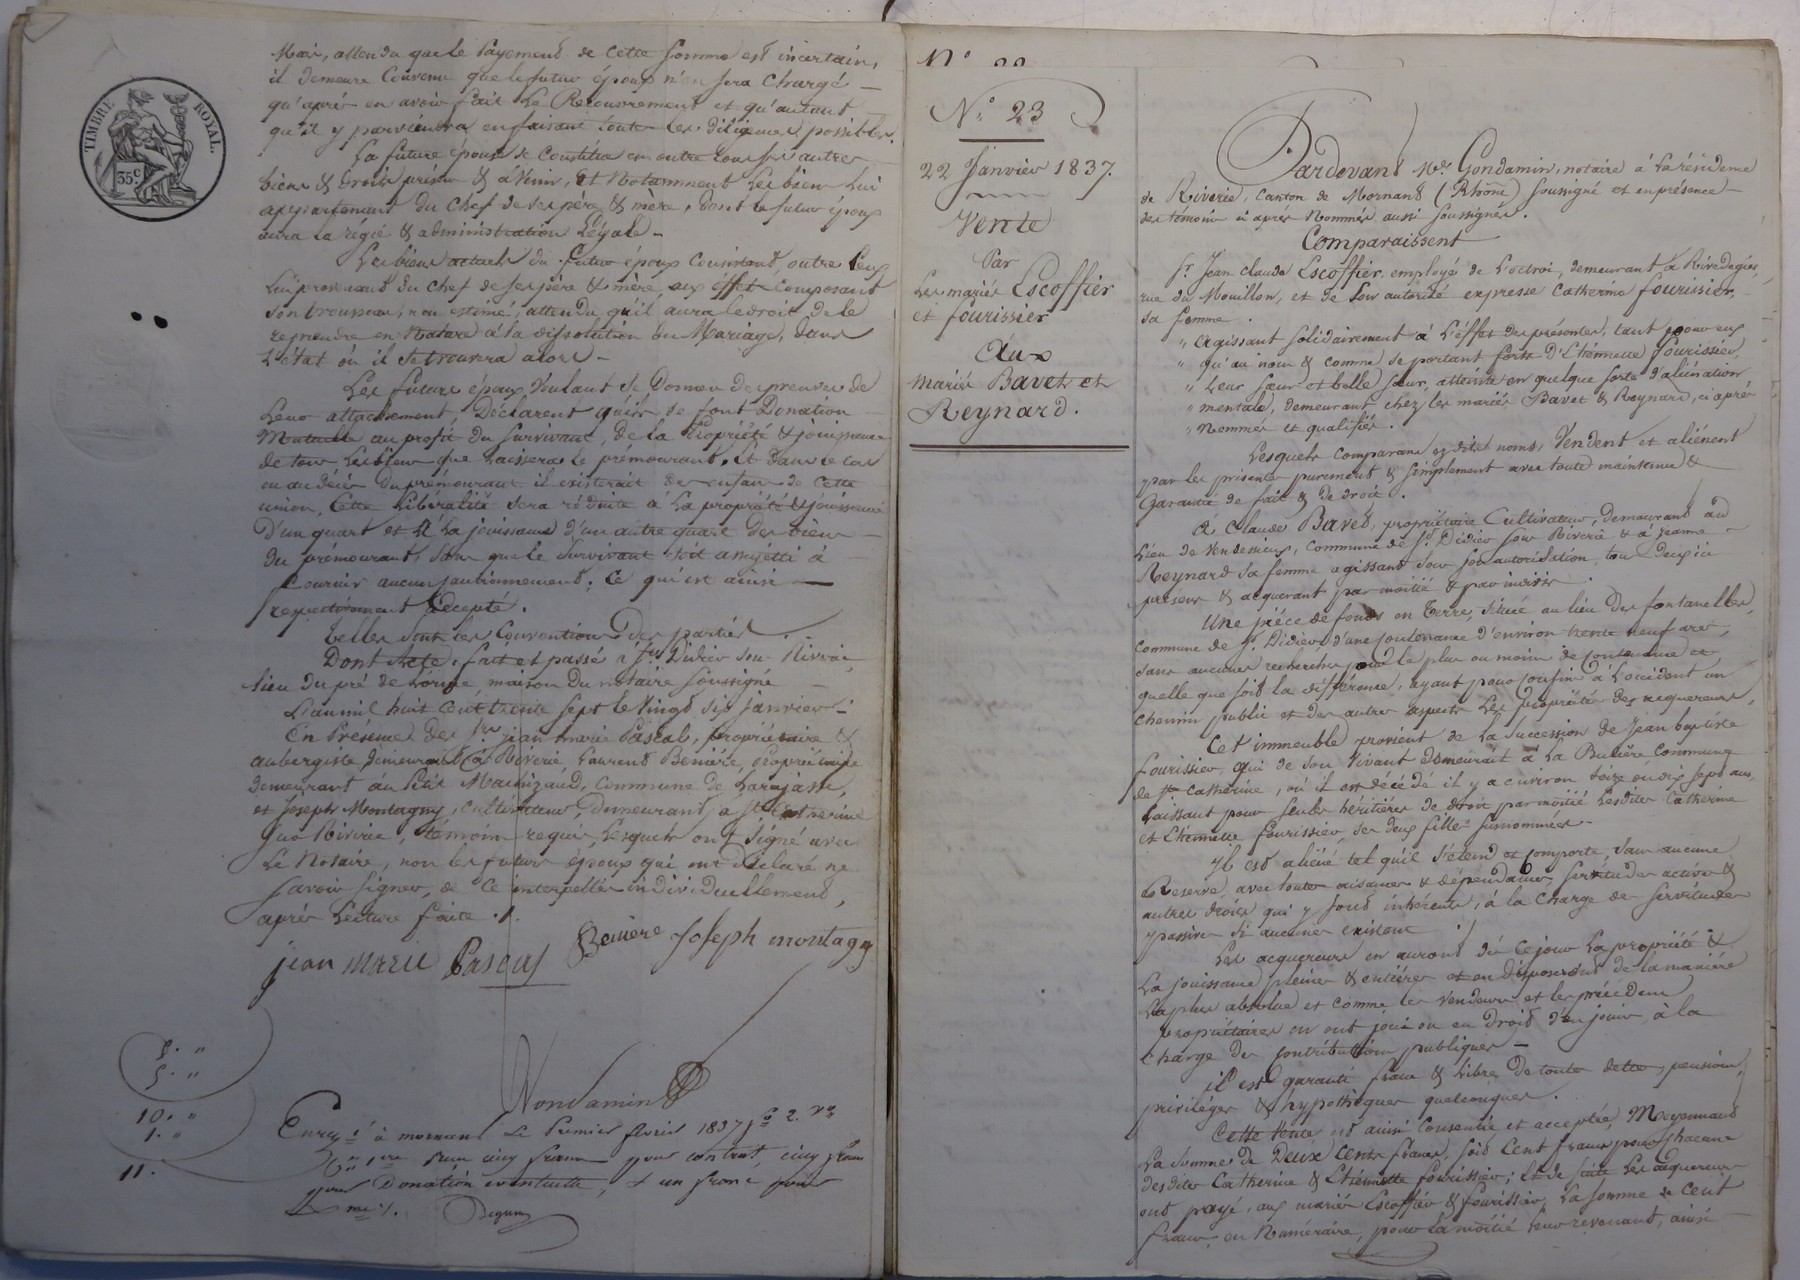 TIMBRE ROYAL.
35c
Mais, attendu que le payement de cette somme est incertain,
il demeure convenu que le futur époux n'en sera chargé
qu'après en avoir fait le Recouvrement et qu'autant
qu'il y parviendra en faisant toutes les diligences possibles.
La future épouse se constitue en outre tous ses autres
biens & droits présens & à venir, et notamment les biens lui
appartenant du chef de ses père & mère, dont le futur époux
aura la régie & administration légale.
Les biens actuels du futur époux consistent, outre ceux
lui provenant du chef de ses père & mère, aux effets composant
son trousseau, non estimé, attendu qu'il aura le droit de le
reprendre en nature à la dissolution du Mariage, dans
l'état où il se trouvera alors
Les futurs époux voulant se donner des preuves de
leur attachement, Déclarent qu'ils se font Donation
Mutuelle au profit du survivant, de la propriété & jouissance
de tous les biens que laissera le prémourant. Et dans le cas
où au décès du prémourant il existerait des enfans de cette
union, Cette libéralité sera réduite à la propriété & jouissance
D'un quart et à la jouissance d'un autre quart des biens
du prémourant, sans que le survivant soit assujetti à
fournir aucun cautionnement. Ce qui est ainsi
respectivement accepté.
Telles sont les Conventions des parties
Dont Acte, fait et passé à St Didier sous Riverie,
lieu du pré de l'orme, maison du notaire soussigné
L'an mil huit cent trente sept le vingt six janvier
En Présence des Srs jean marie Pascal, propriétaire &
aubergiste, demeurant à Riverie, Laurent Benière, propriétaire
demeurant au Petit Maunizaud, commune de Larajasse,
et Joseph Montagny, cultivateur, demeurant à Ste Catherine
sous Riverie, témoins requis, lesquels ont signé avec
le Notaire, non les futurs époux qui ont déclaré ne
savoir signer, de ce interpellés individuellement,
après lecture faite ./.
jean marie Pascal Benière Joseph montagny
Gondamin
5. "
5. "
10. "
1. "
11.
Enregé à mornant le Premier février 1837 fo 2. Vo
Reçu cinq francs pour contrat, cinq francs
pour Donation eventuelle, & un franc pour
No 23
No 23
22 Janvier 1837.
Vente
Par
Les mariés Escoffier
et fourissier
Aux
mariés Bavet et
Reynard.
Pardevant Me Gondamin, notaire à la résidence
de Riverie, canton de Mornant (Rhône) soussigné et en présence
des témoins ci après nommés aussi soussignés.
Comparaissent
Sr Jean claude Escoffier, employé de l'octroi, demeurant à Rivedegier,
rue du Mouillon, et de son autorité expresse Catherine fourissier,
sa femme.
" Agissant solidairement à l'effet des présentes, tant pour eux
" qu'au nom & comme se portant forts d'Etiennette fourissier,
" leur sœur et belle sœur, atteinte en quelque sorte d'aliénation
" mentale, demeurant chez les mariés Bavet & Reynard, ci après
" Nommés et qualifiés.
Lesquels comparans esdits noms, Vendent et aliénent
par les présentes purement & simplement avec toute maintenue &
Garantie de fait & de droit.
A Claude Bavet, propriétaire Cultivateur, demeurant au
lieu de Vendessieux, commune de St Didier sous Riverie & à jeanne
Reynard sa femme agissant sous son autorisation, tous deux ici
présens & acquérant par moitié & par indivis.
Une pièce de fonds en Terre, située au lieu des fontanelles,
commune de St Didier, d'une contenance d'environ trente neuf ares,
sans aucunes recherches pour le plus ou moins de contenance et
quelle que soit la différence, ayant pour confins à l'occident un
chemin public et des autres aspects les propriétés des acquereurs.
Cet immeuble provient de la succession de Jean baptiste
fourissier, qui de son vivant demeurait à la Butière commune
de Ste Catherine, où il est décédé il y a environ seize ou dix sept ans,
laissant pour seules héritières de droit par moitié lesdites Catherine
et Etiennette fourissier, ses deux filles surnommées.
Il est aliéné tel qu'il s'étend et comporte sans aucune
Reserve, avec toutes aisances & dépendances, servitudes actives &
autres droits qui y sont inhérents, à la charge des servitudes
passives si aucunes existent ./.
Les acquereurs en auront dès ce jour la propriété &
la jouissance pleines & entières et en disposeront de la manière
la plus absolue et comme les vendeurs et les précédens
propriétaires en ont joui ou eu droit d'en jouir, à la
charge des contributions publiques
Il est garanti franc & libre de toutes dettes, pensions,
privilèges & hypothèques quelconques.
Cette Vente est ainsi Consentie et acceptée, Moyennant
la somme de Deux Cents francs, soit Cent francs pour chacune
desdites Catherine & Etiennette fourissier; Et de suite les acquereurs
ont payé, aux mariés Escoffier & fourissier, la somme de cent
francs, en Numéraire, pour la moitié leur revenant, ainsi